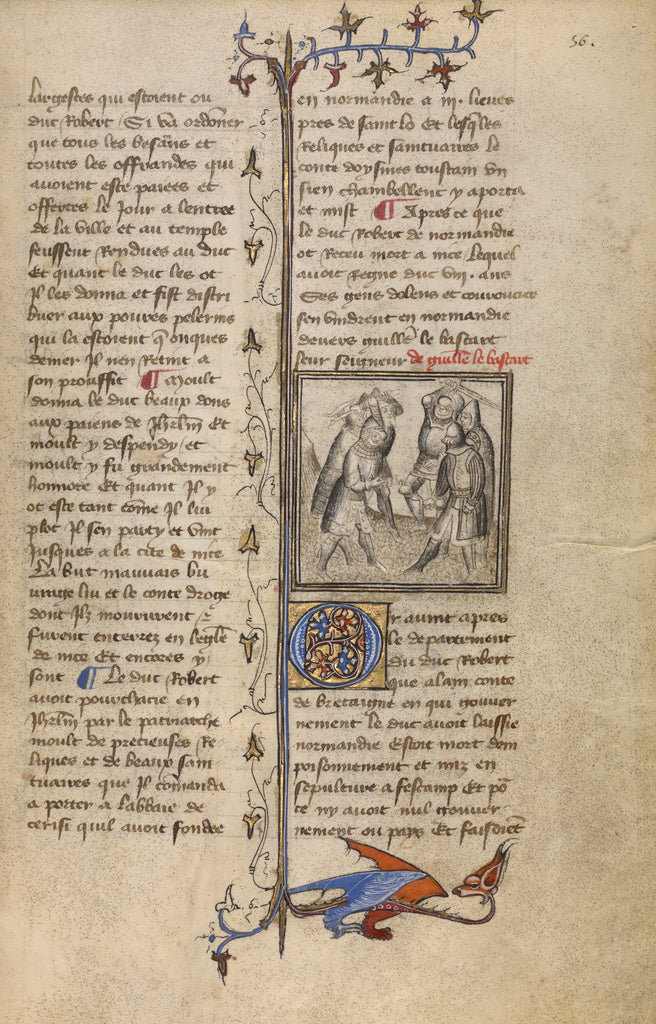 56.
largesces qui estoient ou
duc Robert Si va ordoner
que tous les besans et
toutes les offrandes qui
avoient este paiees et
offertes le Jour a lentree
de la ville et au temple
feussent Rendues au duc
Et quant le duc les ot
Il les donna et fist distri
buer aux poures pelerins
qui la estoient q onques
denier Il nen Retint a
son prouffit ¶ Moult
donna le duc beaux dons
aux paiens de Jhrlm Et
moult y despendy et
moult y fu grandement
honnore Et quant Il y
ot este tant cõme Il lui
plot Il sen party et vint
Jusques a la cite de nice
La but mauvais bu
vraige lui et le conte droge
dont Ilz moururent
furent enterrez en legle
de nice Et encores y
sont ¶ Le duc Robert
avoit pourchacie en
Jhrlm par le patriarche
moult de precieuses Re
liques et de beaux sain
tuaires que Il cõmanda
a porter a labbaie de
cerisi quil avoit fondee
en normandie a iij. lieues
pres de saint lo Et lesqles
Reliques et saintuaires le
conte doysmes toustain vn
sien chambellenc y aporta
et mist ¶ Apres ce que
le duc Robert de normandie
ot Receu mort a nice lequel
avoit Regne duc viij. ans
Ses gens dolens et courouciez
sen vindrent en normandie
devers guille le bastart
leur seigneur de guille le bastart
Or avint apres
le departement
du duc Robert
que alain conte
de bretaigne en qui gouver
nement le duc avoit laissie
normandie Estoit mort dem
poisonnement et mis en
sepulture a fescamp Et po
ce ny avoit nul gouver
nement ou pays Et faisoiet